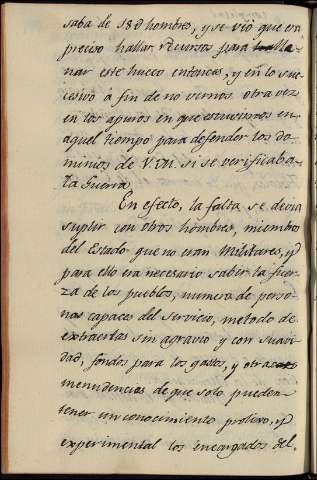 saba de 18∂ hombres, y se vió que era
preciso hallar recursos para lle-
nar este hueco entonces, y en lo suc-
cesivo à fin de no vernos otra vez
en los apuros en que estuvimos en
aquel tiempo para defender los do-
minios de V.M. si se verificaba
la Guerra.
En efecto, la falta se devia
suplir con otros hombres, miembros
del Estado que no eran Militares, y
para ello era necesario saber la fuer-
za de los pueblos, numero de perso-
nas capaces del servicio, metodo de
extraerlas sin agravio y con suavi-
dad, fondos para los gastos, y otras
menudencias de que solo pueden
tener un conocimiento prolixo, y
experimental los encargados del.